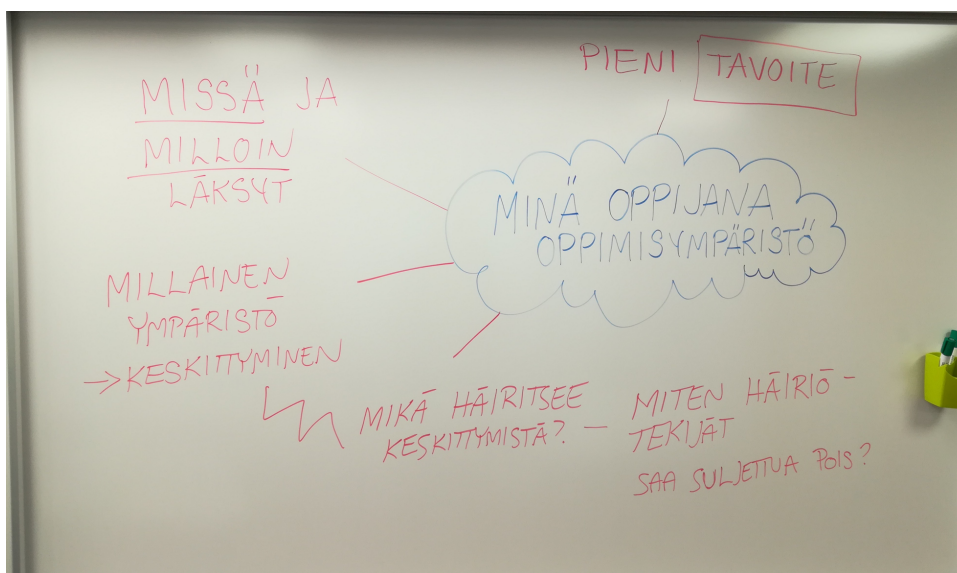 PIENI TAVOITE
MISSÄ JA
MILLOIN
LÄKSYT
MINÄ OPPIJANA
OPPIMISYMPÄRISTÖ
MILLAINEN
YMPÄRISTÖ
→ KESKITTYMINEN
MIKÄ HÄIRITSEE
KESKITTYMISTÄ? —
MITEN HÄIRIÖ-
TEKIJÄT
SAA SULJETTUA POIS?